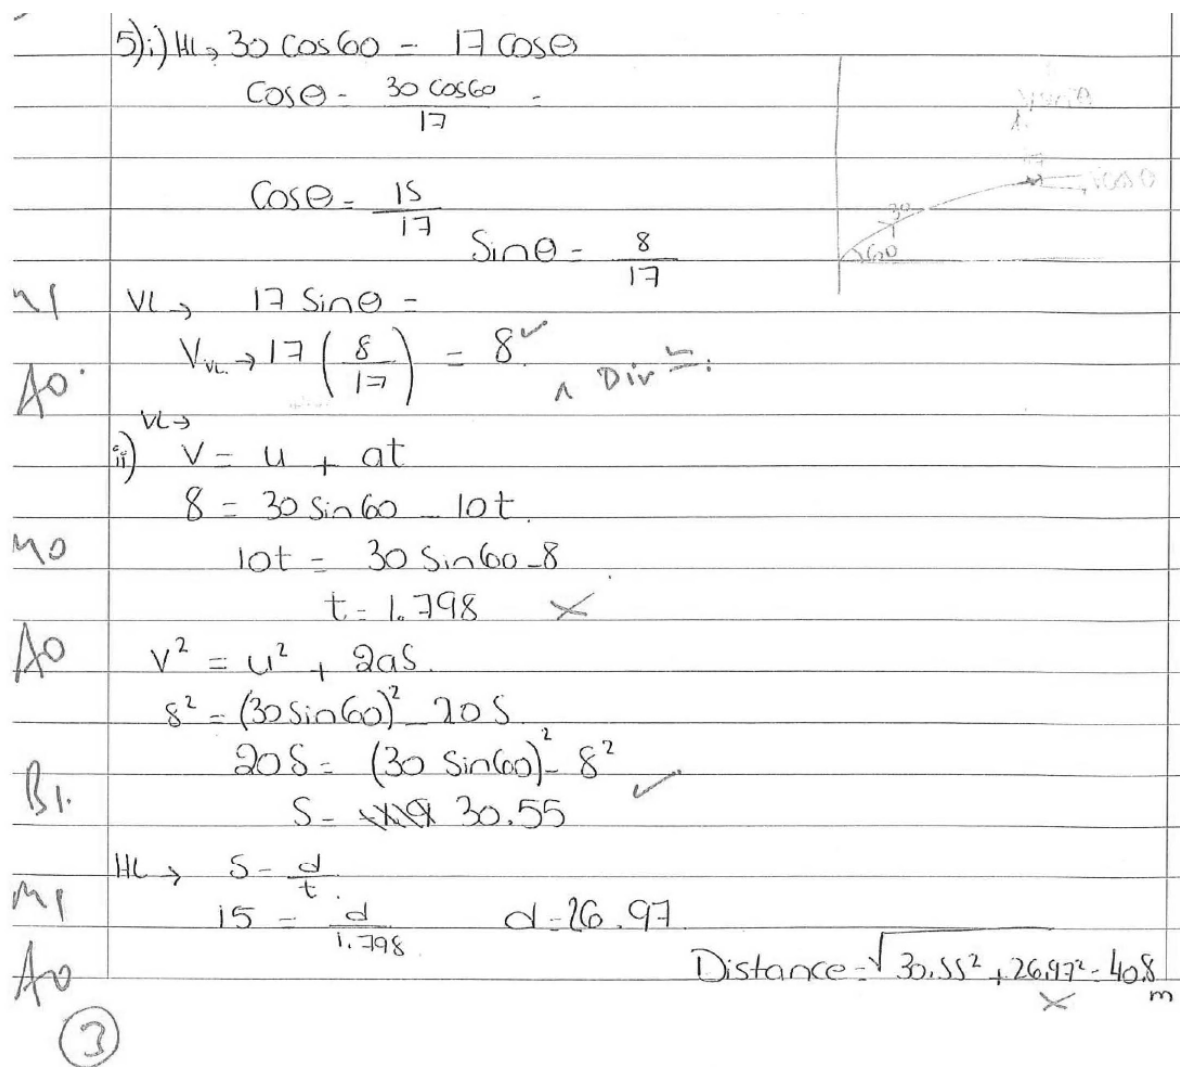 5)i) HL→ 30 cos60 = 17 cosθ
cosθ = 30 cos60 / 17 =
cosθ = 15/17
30
60
sinθ = 8/17
M1 VL→ 17 sinθ =
V_VL → 17 (8/17) = 8 ✓
A0 ^ Dir
VL→
ii) V = u + at
8 = 30 sin60 - 10t
M0 10t = 30 sin60 - 8
t = 1.798 ×
A0 V² = u² + 2as
8² = (30 sin60)² - 20S
20S = (30 sin60)² - 8²
B1. S = 30.55 ✓
HL→ S = d/t
M1 15 = d/1.798 d = 26.97
A0 Distance = √30.55² + 26.97² = 40.8 m
×
3